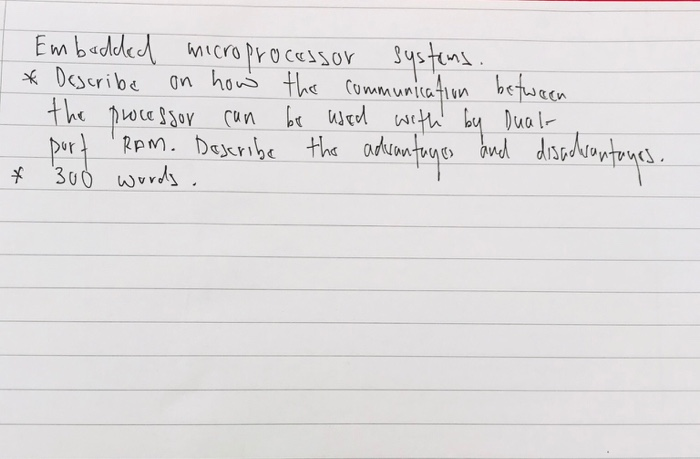 Embedded microprocessor systems.
* Describe on how the communication between
the processor can be used with by Dual-
port RAM. Describe the advantages and disadvantages.
* 300 words.